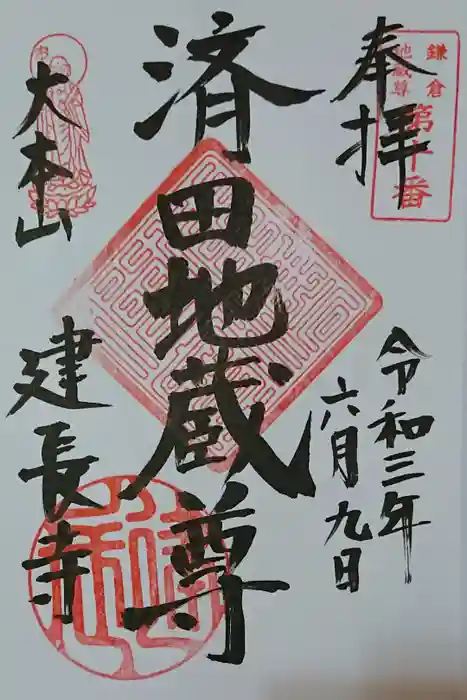 奉拝
鎌倉
地蔵尊
第十番
令和三年
六月九日
済田地蔵尊
大本山
建長寺